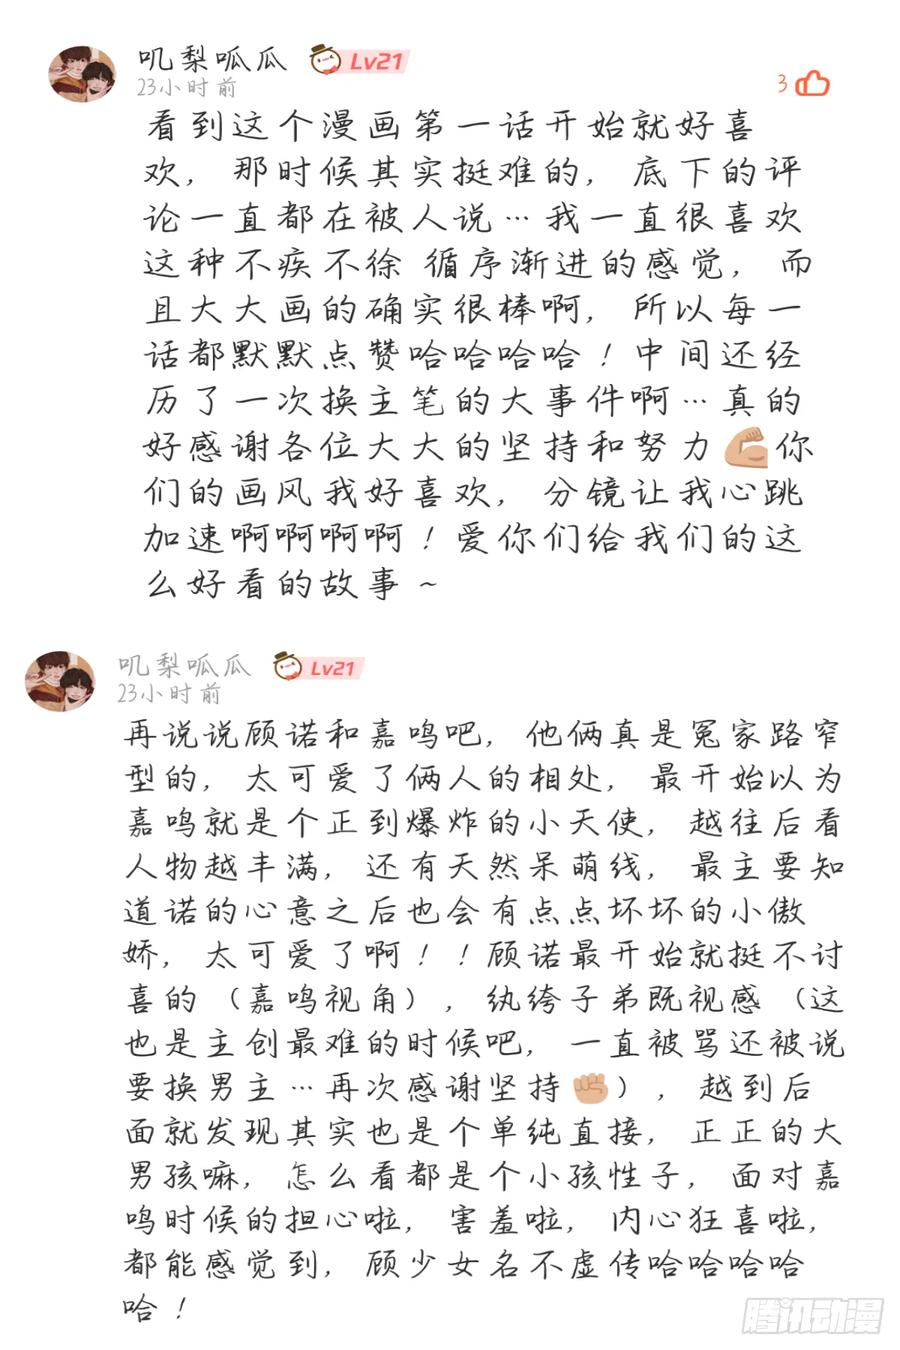 叽梨呱瓜 Lv21
23小时前
3
看到这个漫画第一话开始就好喜
欢，那时候其实挺难的，底下的评
论一直都在被人说…我一直很喜欢
这种不疾不徐 循序渐进的感觉，而
且大大画的确实很棒啊，所以每一
话都默默点赞哈哈哈哈！中间还经
历了一次换主笔的大事件啊…真的
好感谢各位大大的坚持和努力💪你
们的画风我好喜欢，分镜让我心跳
加速啊啊啊啊！爱你们给我们的这
么好看的故事～
叽梨呱瓜 Lv21
23小时前
再说说顾诺和嘉鸣吧，他俩真是冤家路窄
型的，太可爱了俩人的相处，最开始以为
嘉鸣就是个正到爆炸的小天使，越往后看
人物越丰满，还有天然呆萌线，最主要知
道诺的心意之后也会有点点坏坏的小傲
娇，太可爱了啊！！顾诺最开始就挺不讨
喜的（嘉鸣视角），纨绔子弟既视感（这
也是主创最难的时候吧，一直被骂还被说
要换男主…再次感谢坚持✊），越到后
面就发现其实也是个单纯直接，正正的大
男孩嘛，怎么看都是个小孩性子，面对嘉
鸣时候的担心啦，害羞啦，内心狂喜啦，
都能感觉到，顾少女名不虚传哈哈哈哈
哈！
腾讯动漫